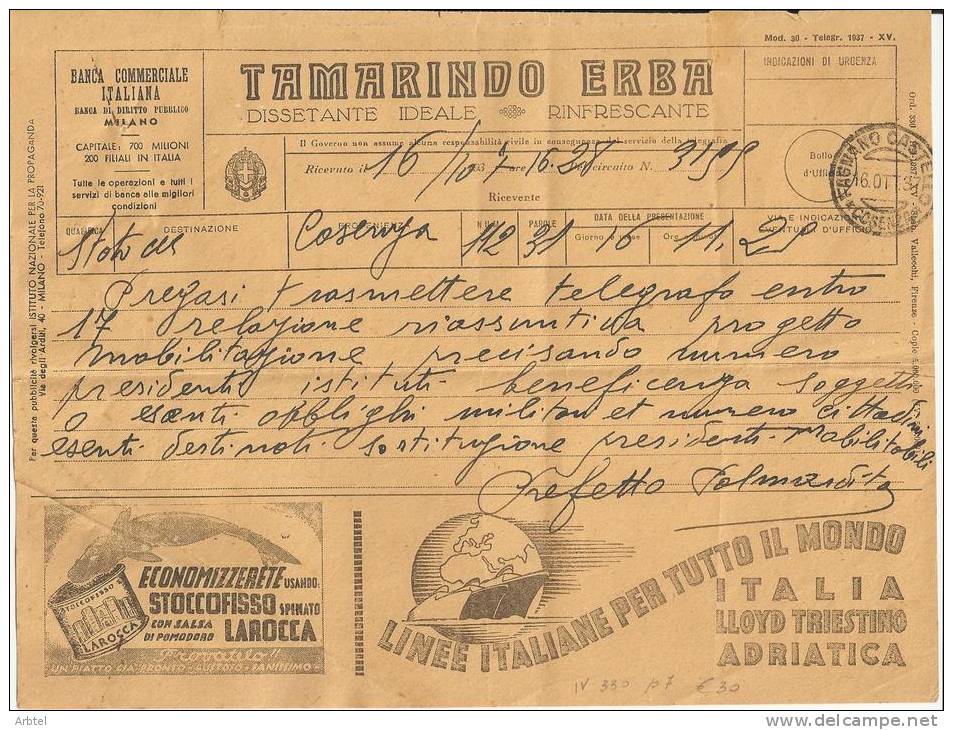 Mod. 30 - Telegr. 1937 - XV.
BANCA COMMERCIALE
ITALIANA
BANCA DI DIRITTO PUBBLICO
MILANO
CAPITALE: 700 MILIONI
200 FILIALI IN ITALIA
Tutte le operazioni e tutti i
servizi di banca alle migliori
condizioni
TAMARINDO ERBA
DISSETANTE IDEALE RINFRESCANTE
INDICAZIONI DI URGENZA
Il Governo non assume alcuna responsabilità civile in conseguenza del servizio della telegrafia
Ricevuto il 16/10 193 7 ore 16.38 circuito N. 3199
Ricevente
Bollo
d'Ufficio
FAGNANO CASTELLO
16.OTT.37
COSENZA
QUALIFICA DESTINAZIONE PROVENIENZA NUM. PAROLE DATA DELLA PRESENTAZIONE VIA E INDICAZIONI
EVENTUALI D'UFFICIO
Giorno e mese Ore
Cosenza 31 16 11.25
Pregasi trasmettere telegrafo entro
17 relazione riassuntiva progetto
mobilitazione precisando numero
presidenti istituti beneficenza soggetti
o esenti obblighi militari et numero cittadini
esenti destinati sostituzione presidenti mobilitabili
Prefetto
Per questa pubblicità rivolgersi ISTITUTO NAZIONALE PER LA PROPAGANDA
Via degli Arditi, 40 - MILANO - Telefono 70-921
Vallecchi, Firenze - Copie
STOCCOFISSO
LAROCCA
ECONOMIZZERETE USANDO:
STOCCOFISSO SPINATO
CON SALSA
DI POMODORO LAROCCA
Provatelo!!
UN PIATTO GIA' PRONTO - GUSTOSO - SANISSIMO -
LINEE ITALIANE PER TUTTO IL MONDO
ITALIA
LLOYD TRIESTINO
ADRIATICA
IV 330 p7 € 30
Arbtel
www.delcampe.net